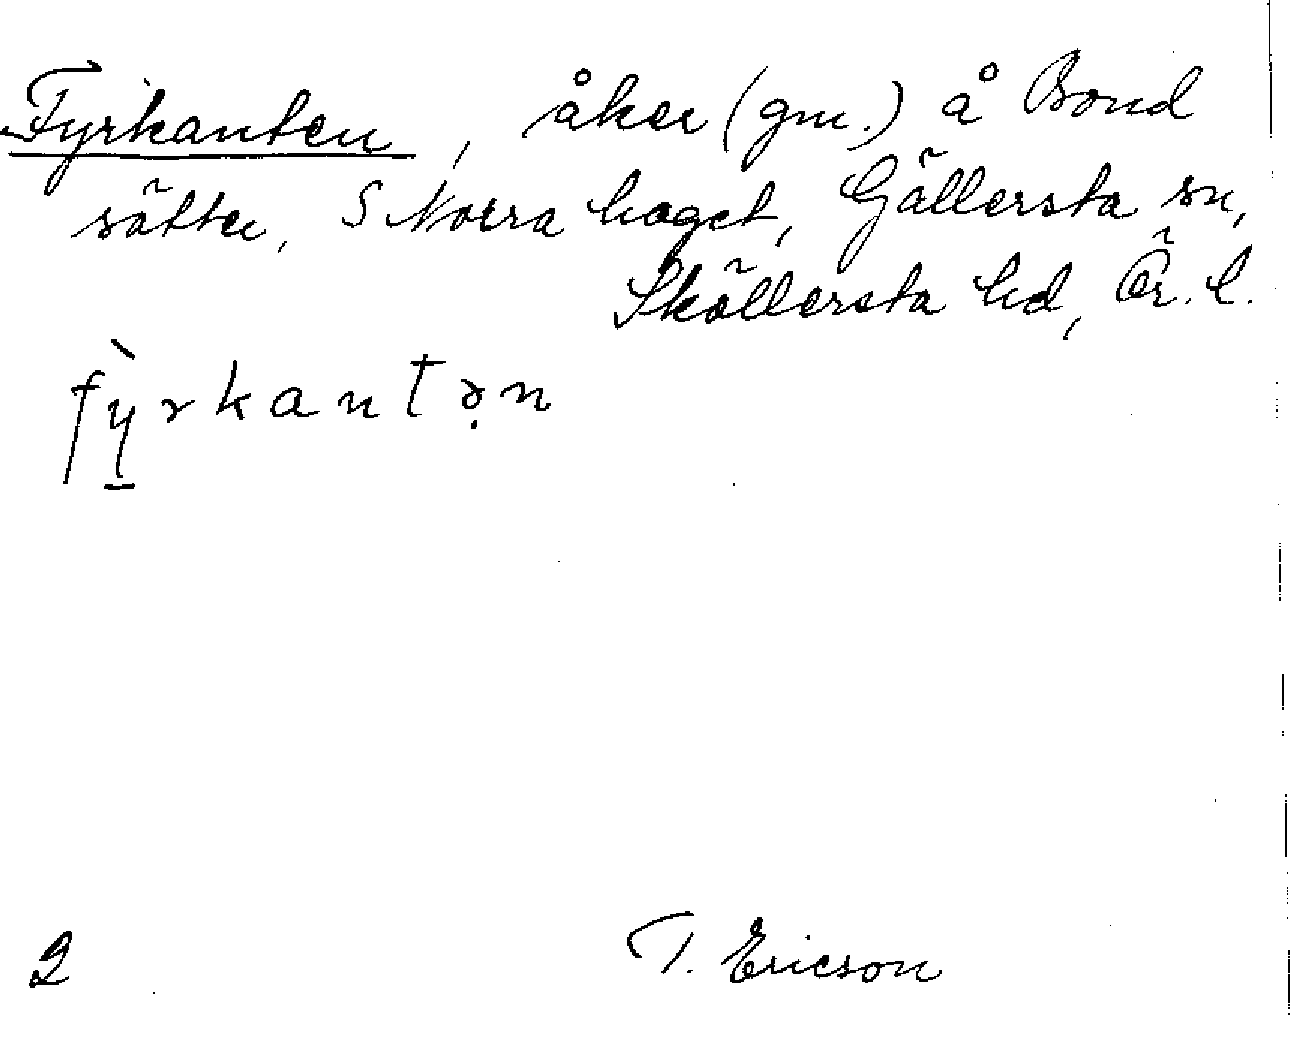 Fyrkanten, åker (gm.) å Bond
sätter, S Norra haget, Gällersta sn,
Sköllersta hd, Ör. l.
fỳ̠rkantə̣n
2 T. Ericson